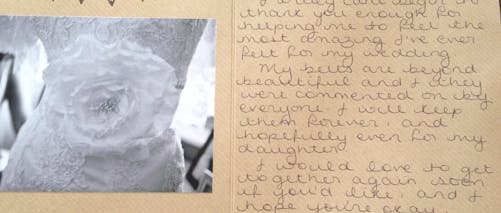 thank you enough for
helping me to feel the
most amazing I've ever
felt for my wedding
My belts are beyond
beautiful and they
were commented on by
everyone I will keep
them forever, and
hopefully even for my
daughter
I would love to get
together again soon
if you'd like, and I
hope you're